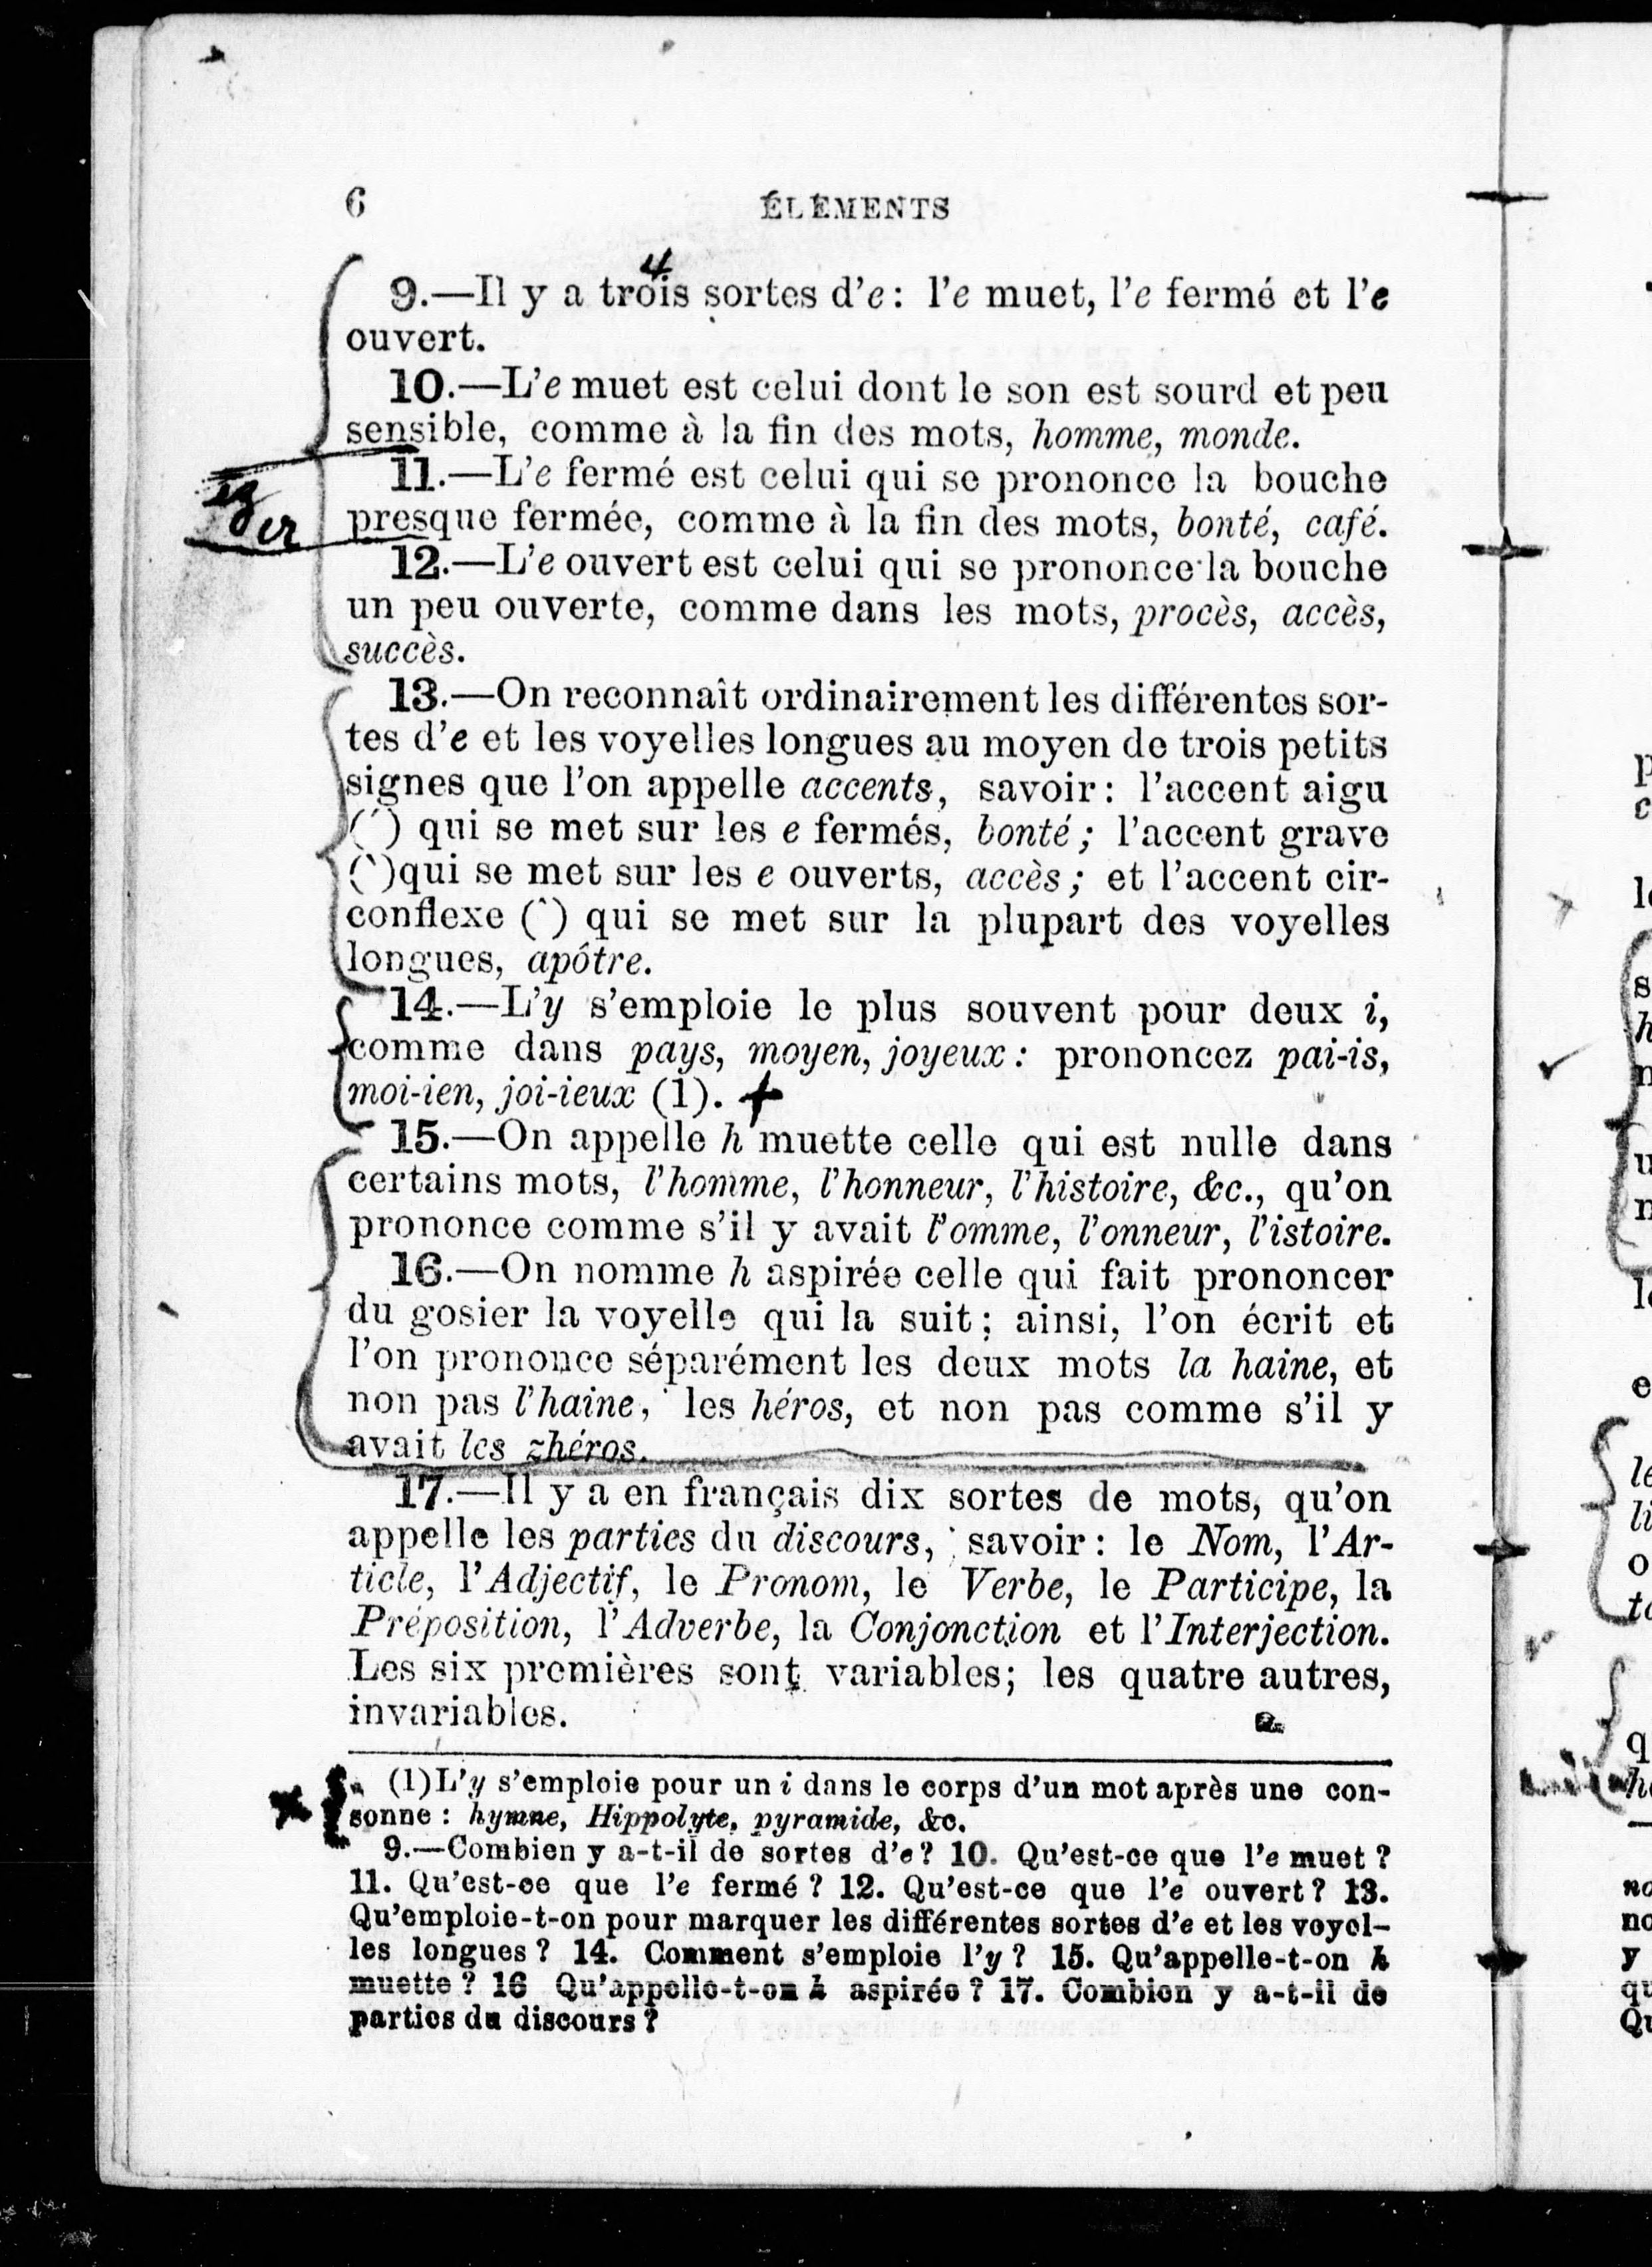 6
ÉLÉMENTS
4
9.—Il y a trois sortes d'e : l'e muet, l'e fermé et l'e
ouvert.
10.—L'e muet est celui dont le son est sourd et peu
sensible, comme à la fin des mots, homme, monde.
11.—L'e fermé est celui qui se prononce la bouche
ez
presque fermée, comme à la fin des mots, bonté, café.
er
12.—L'e ouvert est celui qui se prononce la bouche
un peu ouverte, comme dans les mots, procès, accès,
succès.
13.—On reconnaît ordinairement les différentes sor-
tes d'e et les voyelles longues au moyen de trois petits
signes que l'on appelle accents, savoir : l'accent aigu
(´) qui se met sur les e fermés, bonté ; l'accent grave
(`)qui se met sur les e ouverts, accès ; et l'accent cir-
conflexe (^) qui se met sur la plupart des voyelles
longues, apôtre.
14.—L'y s'emploie le plus souvent pour deux i,
comme dans pays, moyen, joyeux : prononcez pai-is,
moi-ien, joi-ieux (1). +
15.—On appelle h muette celle qui est nulle dans
certains mots, l'homme, l'honneur, l'histoire, &c., qu'on
prononce comme s'il y avait l'omme, l'onneur, l'istoire.
16.—On nomme h aspirée celle qui fait prononcer
du gosier la voyelle qui la suit ; ainsi, l'on écrit et
l'on prononce séparément les deux mots la haine, et
non pas l'haine, les héros, et non pas comme s'il y
avait les zhéros.
17.—Il y a en français dix sortes de mots, qu'on
appelle les parties du discours, savoir : le Nom, l'Ar-
ticle, l'Adjectif, le Pronom, le Verbe, le Participe, la
Préposition, l'Adverbe, la Conjonction et l'Interjection.
Les six premières sont variables ; les quatre autres,
invariables.
(1) L'y s'emploie pour un i dans le corps d'un mot après une con-
sonne : hymne, Hippolyte, pyramide, &c.
9.—Combien y a-t-il de sortes d'e ? 10. Qu'est-ce que l'e muet ?
11. Qu'est-ce que l'e fermé ? 12. Qu'est-ce que l'e ouvert ? 13.
Qu'emploie-t-on pour marquer les différentes sortes d'e et les voyel-
les longues ? 14. Comment s'emploie l'y ? 15. Qu'appelle-t-on h
muette ? 16 Qu'appelle-t-on h aspirée ? 17. Combien y a-t-il de
parties du discours ?